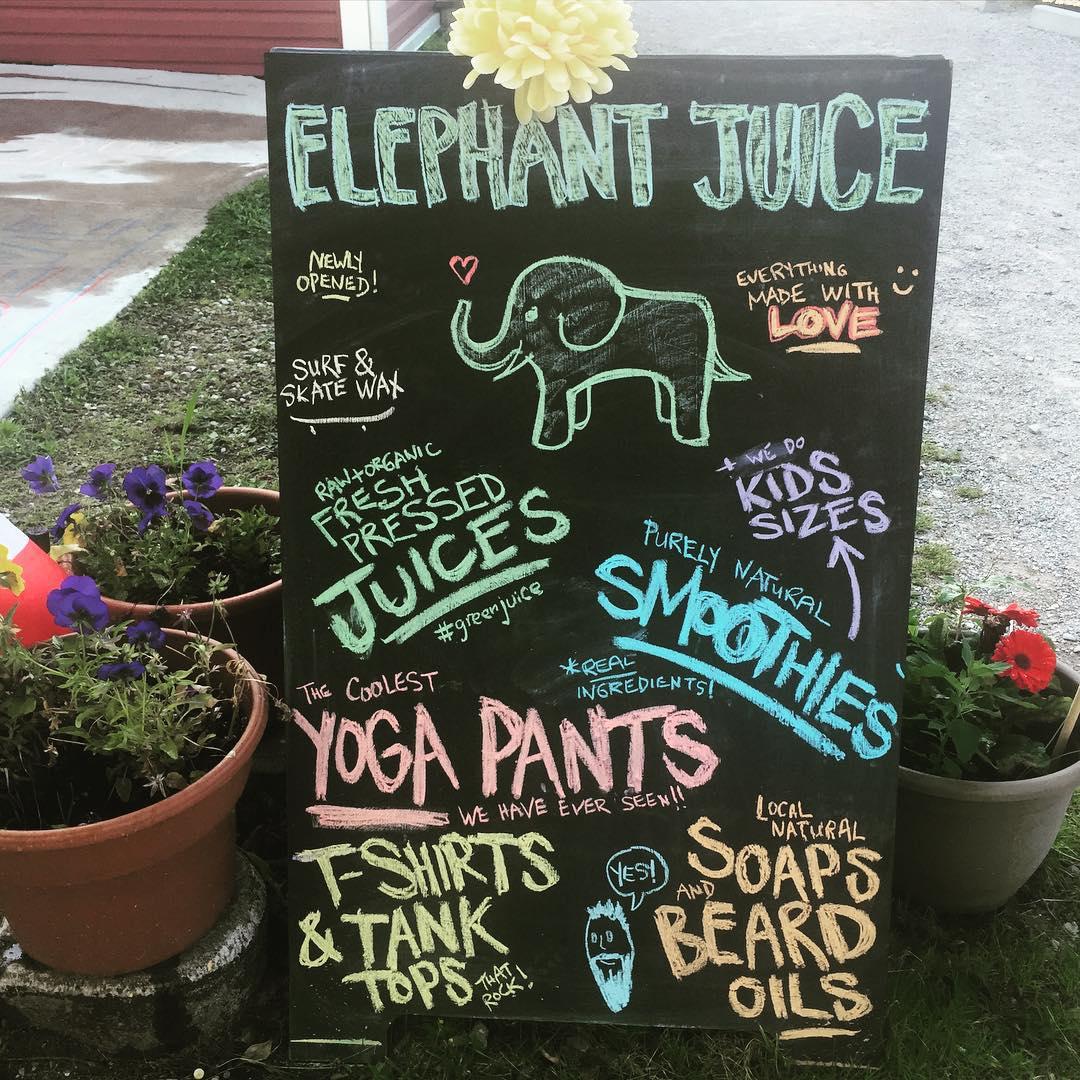 ELEPHANT JUICE
NEWLY
OPENED!
EVERYTHING
MADE WITH
LOVE
SURF &
SKATE WAX
RAW + ORGANIC
FRESH
PRESSED
JUICES
#greenjuice
+ WE DO
KIDS
SIZES
PURELY NATURAL
SMOOTHIES
*REAL
INGREDIENTS!
THE COOLEST
YOGA PANTS
WE HAVE EVER SEEN!!
T-SHIRTS
& TANK
TOPS THAT
ROCK!
YES!
LOCAL
NATURAL
SOAPS
AND
BEARD
OILS